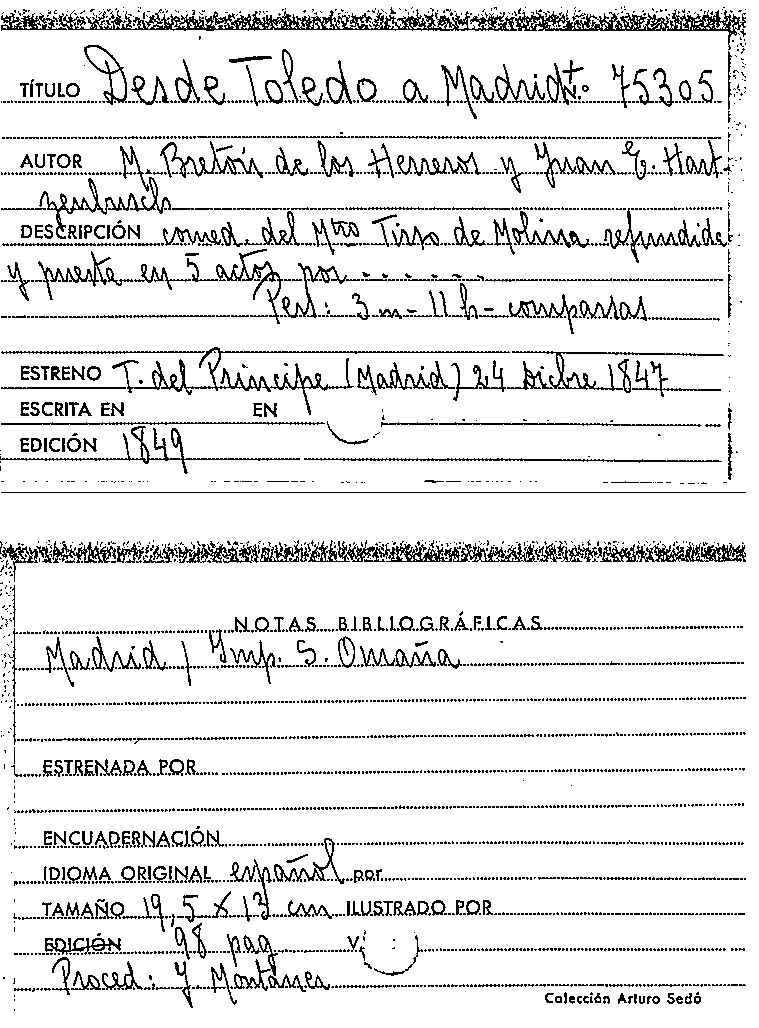 TÍTULO Desde Toledo a Madrid N.º 75305
AUTOR M. Bretón de los Herreros y Juan E. Hart-
zenbusch
DESCRIPCIÓN comed. del Mtro Tirso de Molina refundida
y puesta en 5 actos por - - - - - -
Pers: 3 m - 11 h - comparsas
ESTRENO T. del Principe (Madrid) 24 Dicbre 1847
ESCRITA EN EN
EDICIÓN 1849
NOTAS BIBLIOGRÁFICAS
Madrid / Imp. S. Omaña
ESTRENADA POR
ENCUADERNACIÓN
IDIOMA ORIGINAL español por
TAMAÑO 19,5 X 13 cm ILUSTRADO POR
EDICIÓN 98 pag V.
Proced: J Montaner
Colección Arturo Sedó